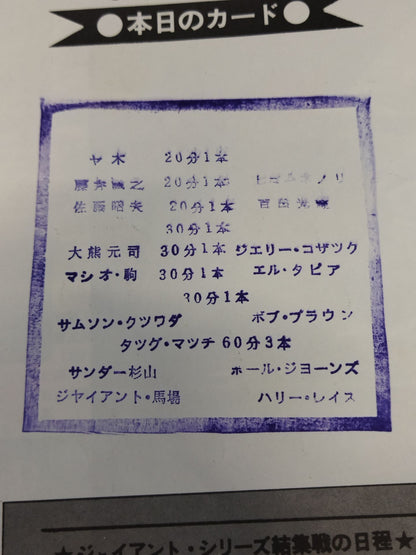 ●本日のカード●
ヤ木 20分1本
藤井誠之 20分1本
佐藤昭夫 20分1本 百田光雄
30分1本
大熊元司 30分1本 ジエリー・コザツク
マシオ・駒 30分1本 エル・タピア
30分1本
サムソン・クツワダ ボブ・ブラウン
タツグ・マツチ 60分3本
サンダー杉山 ポール・ジヨーンズ
ジヤイアント・馬場 ハリー・レイス
★ジャイアント・シリーズ結集戦の日程★